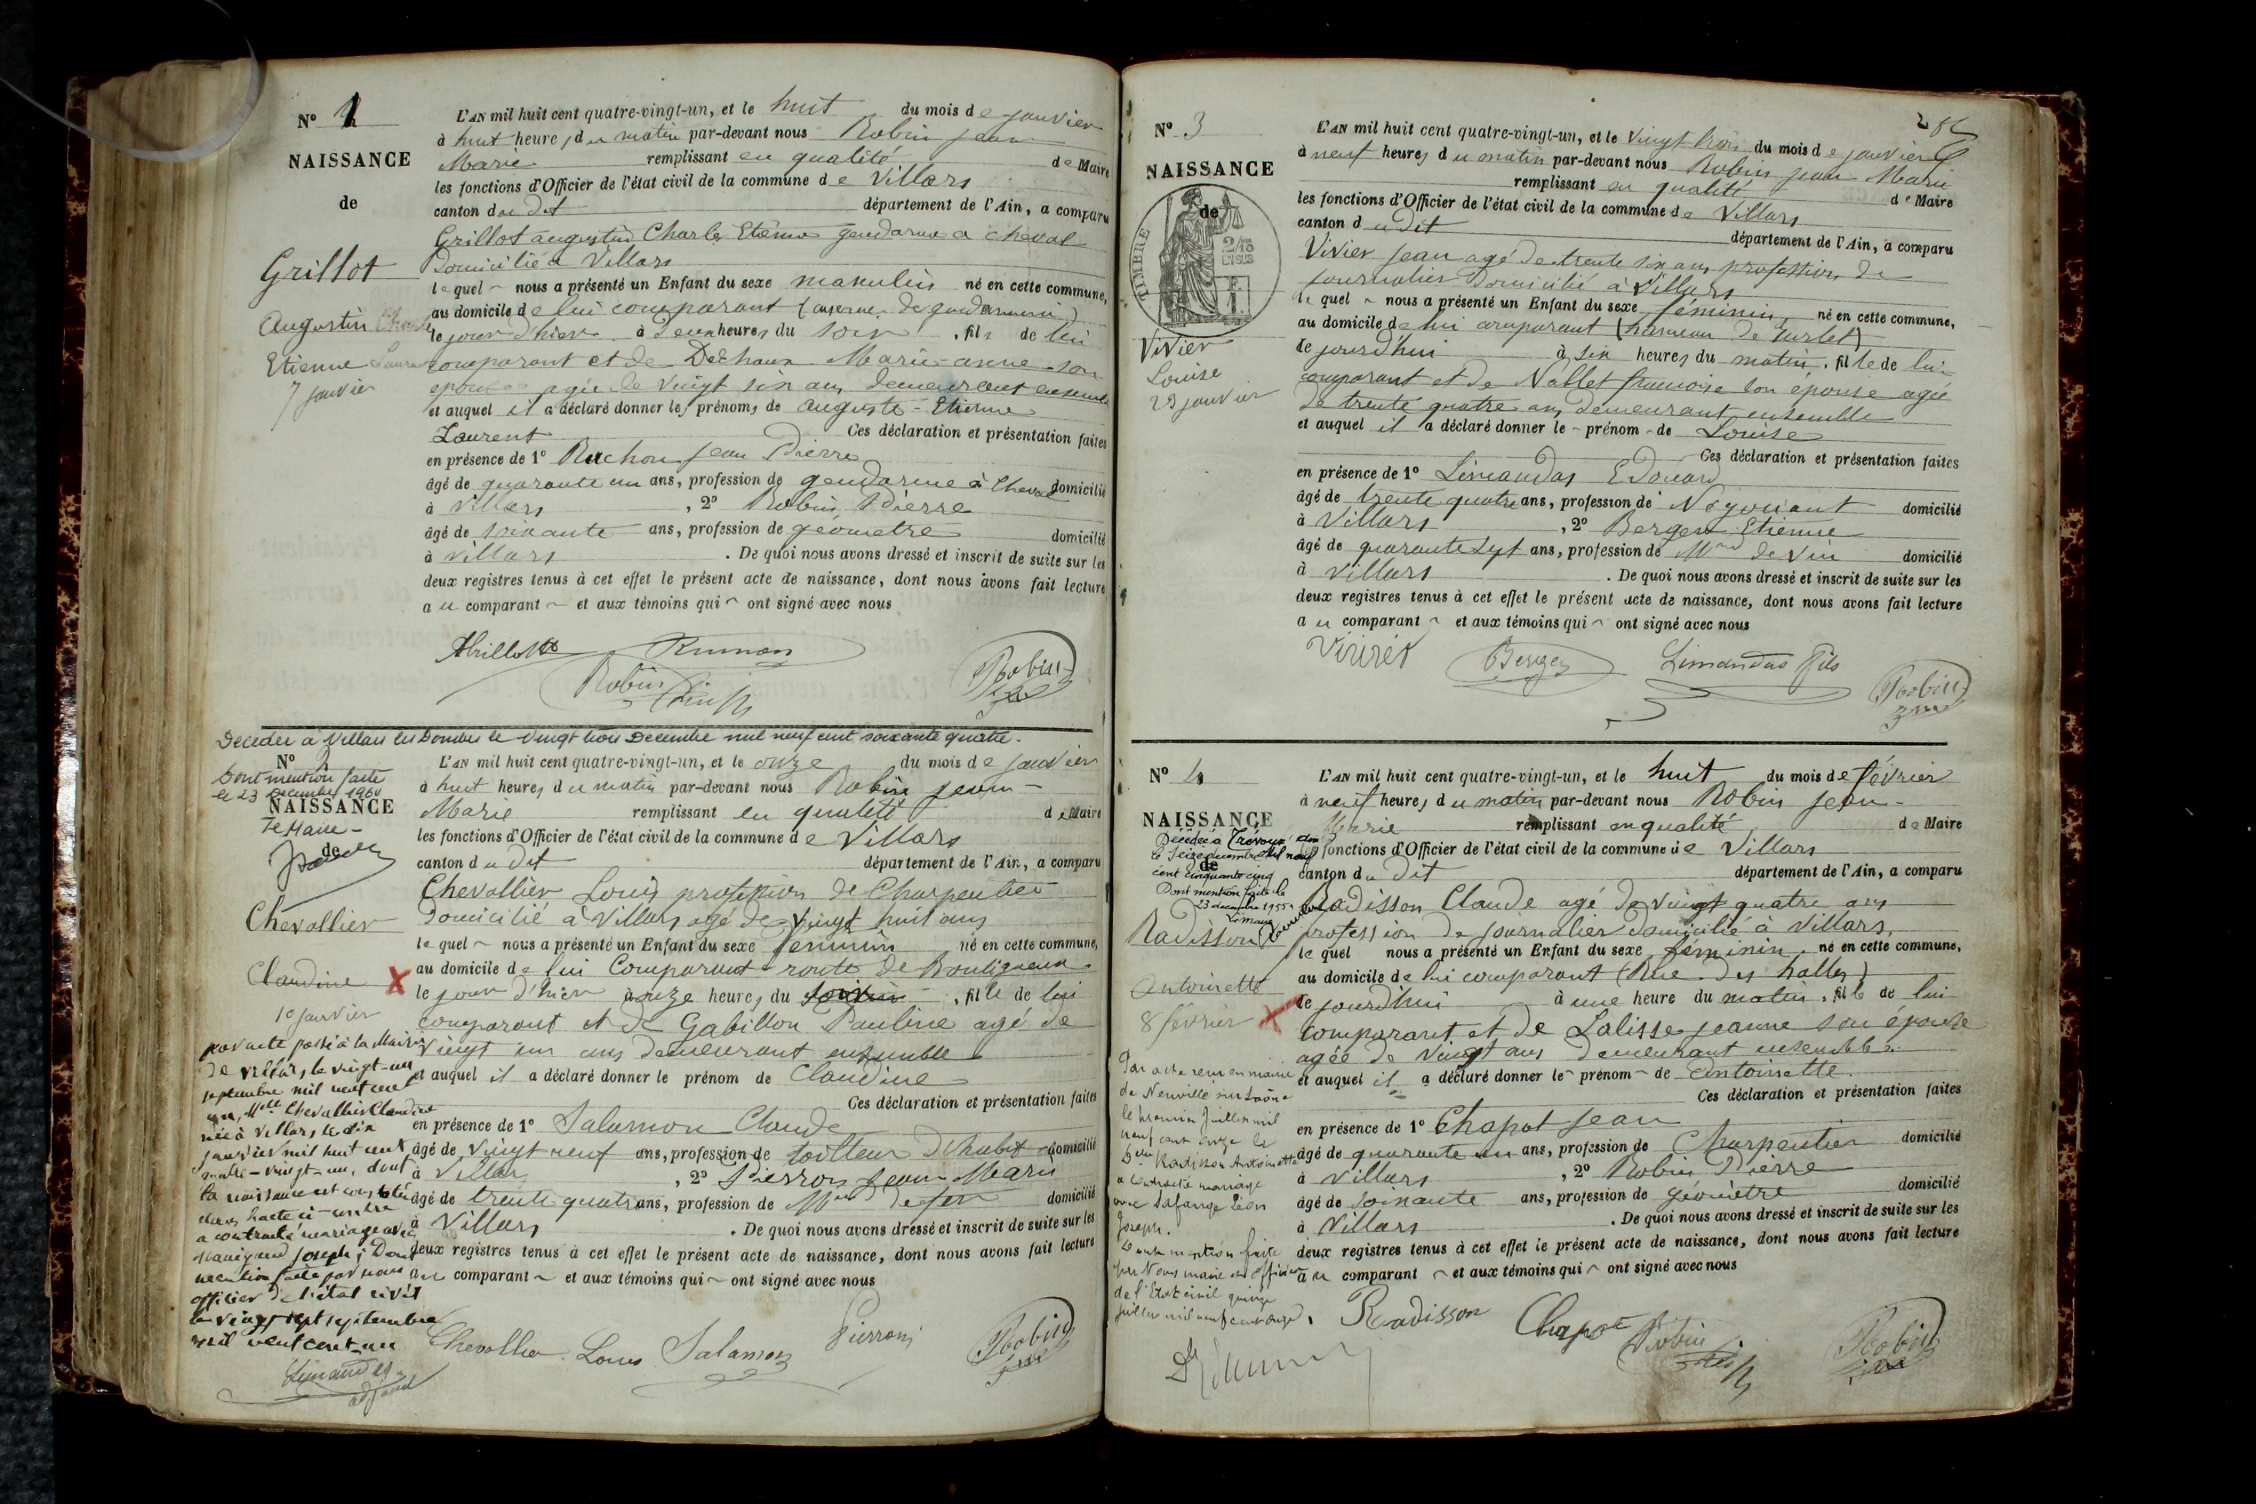 Nº 1
NAISSANCE
de
Grillot
Augustin
Etienne
7 janvier
L'AN mil huit cent quatre-vingt-un, et le huit du mois de janvier
à huit heures du matin par-devant nous Robin jean
Marie remplissant en qualité de Maire
les fonctions d'Officier de l'état civil de la commune de Villars
canton du dit département de l'Ain, a comparu
Grillot augustin Charles Etienne gendarme a cheval
Domicilié a Villars
lequel nous a présenté un Enfant du sexe masculin né en cette commune,
au domicile de lui comparant (caserne de gendarmerie)
le jour d'hier à deux heures du soir, fils de lui
comparant et de Dechaux Marie-anne son
epouse agée de vingt six ans demeurant ensemble
et auquel il a déclaré donner les prénoms de auguste-Etienne
Laurent Ces déclaration et présentation faites
en présence de 1º Ruchon jean Pierre
âgé de quarante un ans, profession de gendarme à Cheval domicilié
à Villars, 2º Robin Pierre
âgé de soixante ans, profession de géomètre domicilié
à Villars. De quoi nous avons dressé et inscrit de suite sur les
deux registres tenus à cet effet le présent acte de naissance, dont nous avons fait lecture
au comparant et aux témoins qui ont signé avec nous
Robin
Robin
Décédée à Villars les Dombes le vingt trois Décembre mil neuf cent soixante quatre.
Nº 2
Dont mention faite
le 23 Décembre 1964
NAISSANCE
Le Maire
de
Chevallier
Claudine
10 janvier
par acte passé à la Mairie
de Villars, le vingt-un
septembre mil neuf cent
un, Melle Chevallier Claudine
née à Villars le dix
janvier mil huit cent
quatre-vingt-un, dont
la naissance est constatée
dans l'acte ci-contre
a contracté mariage avec
Joseph; Dont
mention faite par nous
officier de l'état civil
le vingt sept septembre
mil neuf cent un
adjoint
L'AN mil huit cent quatre-vingt-un, et le onze du mois de janvier
à huit heures du matin par-devant nous Robin jean-
Marie remplissant en qualité de Maire
les fonctions d'Officier de l'état civil de la commune de Villars
canton du dit département de l'Ain, a comparu
Chevallier Louis profession de Charpentier
Domicilié à Villars agé de vingt huit ans
lequel nous a présenté un Enfant du sexe féminin né en cette commune,
au domicile de lui Comparant route de Bouligneux
le jour d'hier à onze heures du, fille de lui
comparant et de Gabillon Pauline agé de
vingt un ans demeurant ensemble
et auquel il a déclaré donner le prénom de Claudine
Ces déclaration et présentation faites
en présence de 1º Salamon Claude
âgé de vingt neuf ans, profession de tailleur d'habit domicilié
à Villars, 2º Pierron jean Marie
âgé de trente quatre ans, profession de Md de fer domicilié
à Villars. De quoi nous avons dressé et inscrit de suite sur les
deux registres tenus à cet effet le présent acte de naissance, dont nous avons fait lecture
au comparant et aux témoins qui ont signé avec nous
Chevallier Louis Salamon Pierron Robin
286
Nº 3
NAISSANCE
de
TIMBRE
Vivier
Louise
23 janvier
L'AN mil huit cent quatre-vingt-un, et le vingt trois du mois de janvier
à neuf heures du matin par-devant nous Robin jean Marie
remplissant en qualité de Maire
les fonctions d'Officier de l'état civil de la commune de Villars
canton du dit département de l'Ain, a comparu
Vivier jean agé de trente six ans profession de
journalier Domicilié à Villars
lequel nous a présenté un Enfant du sexe féminin, né en cette commune,
au domicile de lui comparant (hameau de
le jourd'hui à six heures du matin, fille de lui
comparant et de Nallet françoise son épouse agée
de trente quatre ans demeurant ensemble
et auquel il a déclaré donner le prénom de Louise
Ces déclaration et présentation faites
en présence de 1º Limandas Edouard
âgé de trente quatre ans, profession de Négociant domicilié
à Villars, 2º Berger Etienne
âgé de quarante sept ans, profession de Md de vin domicilié
à Villars. De quoi nous avons dressé et inscrit de suite sur les
deux registres tenus à cet effet le présent acte de naissance, dont nous avons fait lecture
au comparant et aux témoins qui ont signé avec nous
Berger Limandas fils Robin
Nº 4
NAISSANCE
Décédée à Trévoux
le seize décembre mil neuf
de
cent cinquante cinq
Dont mention faite le
23 décembre 1955
Le maire
Radisson
Antoinette
8 février
Par acte reçu en mairie
de Neuville sur Saône
le juillet mil
neuf cent onze la
Delle Radisson Antoinette
a contracté mariage
avec Lafarge Léon
Joseph.
Dont mention faite
par Nous maire et officier
de l'Etat civil quinze
juillet mil neuf cent onze.
L'AN mil huit cent quatre-vingt-un, et le huit du mois de février
à neuf heures du matin par-devant nous Robin jean-
Marie remplissant en qualité de Maire
les fonctions d'Officier de l'état civil de la commune de Villars
canton du dit département de l'Ain, a comparu
Radisson Claude agé de vingt quatre ans
profession de journalier domicilié à Villars,
lequel nous a présenté un Enfant du sexe féminin, né en cette commune,
au domicile de lui comparant (Rue des halles)
le jourd'hui à une heure du matin, fille de lui
comparant et de Lalisse jeanne son épouse
agée de vingt ans demeurant ensemble
et auquel il a déclaré donner le prénom de Antoinette.
Ces déclaration et présentation faites
en présence de 1º Chapot jean
âgé de quarante un ans, profession de Charpentier domicilié
à Villars, 2º Robin Pierre
âgé de soixante ans, profession de géomètre domicilié
à Villars. De quoi nous avons dressé et inscrit de suite sur les
deux registres tenus à cet effet le présent acte de naissance, dont nous avons fait lecture
au comparant et aux témoins qui ont signé avec nous
Radisson Chapot Robin Robin